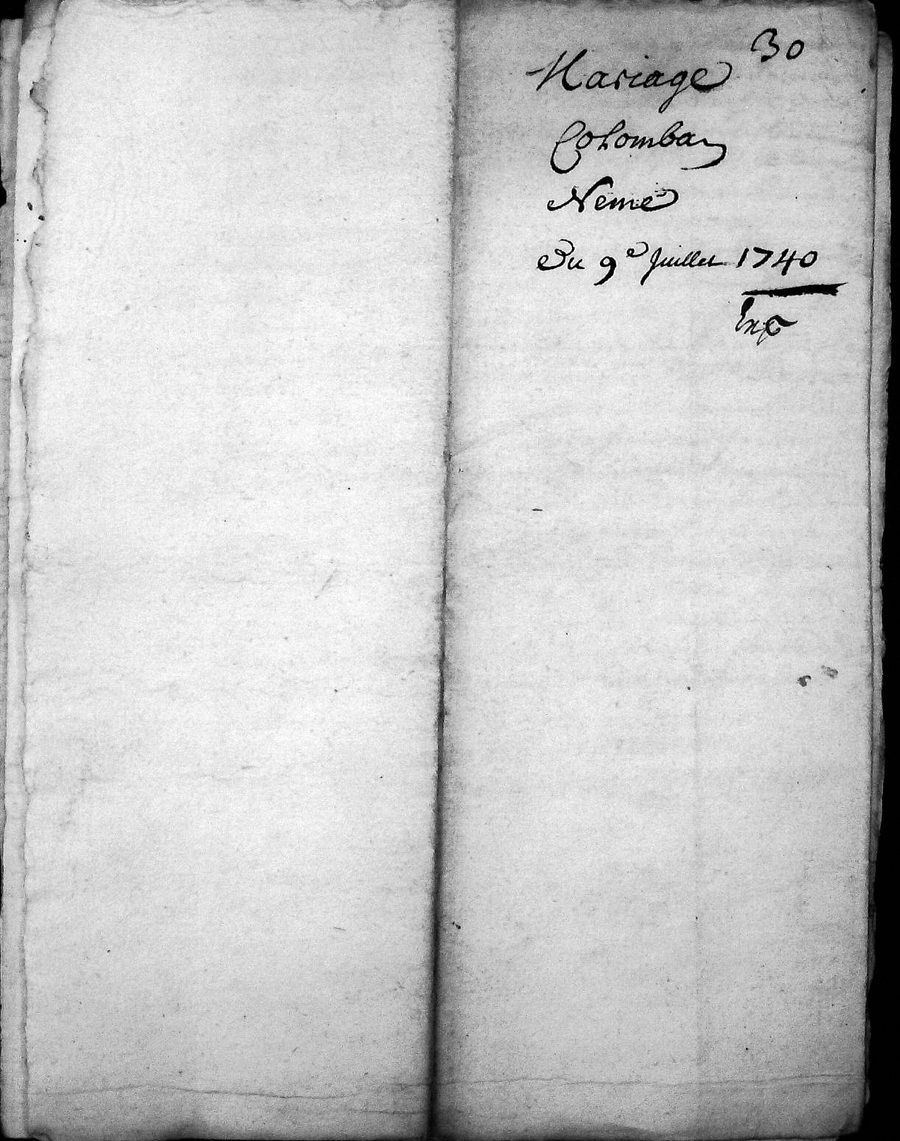 30
Mariage
Colomban
Neme
Du 9e Juillet 1740
Exp